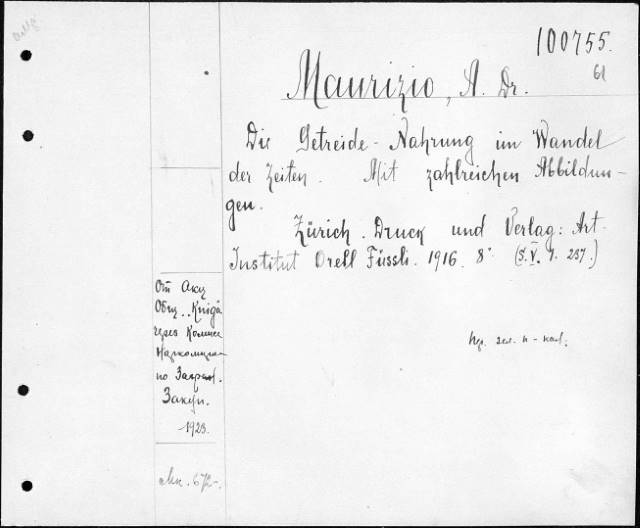 100755.
61
Maurizio, A. Dr.
Die Getreide-Nahrung im Wandel
der Zeiten. Mit zahlreichen Abbildun-
gen.
Zürich. Druck und Verlag: Art.
Institut Orell Füssli. 1916. 8°. (S. V. 1. 237.)
От Акц
Общ. „Kniga
через Комисс
Наркомпрос
по Загран.
Закуп.
1923.